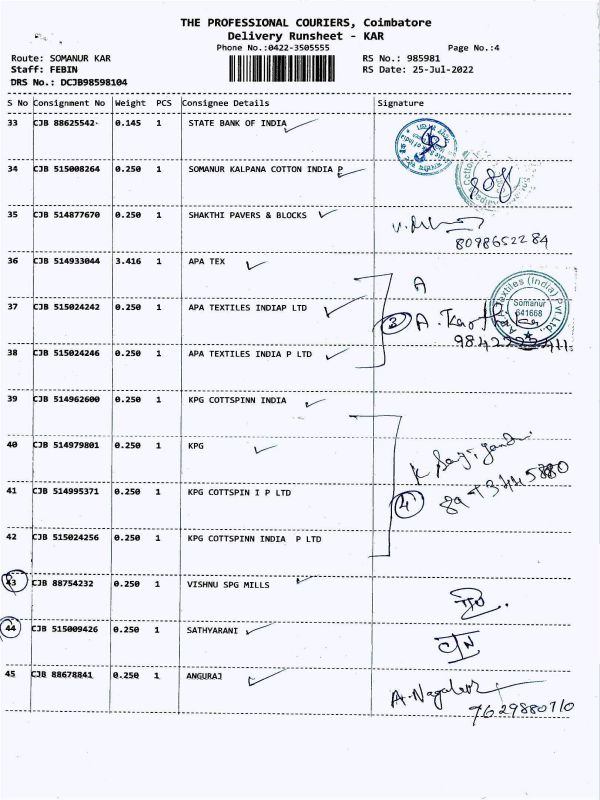 THE PROFESSIONAL COURIERS, Coimbatore
Delivery Runsheet - KAR
Phone No.:0422-3505555 Page No.:4
Route: SOMANUR KAR RS No.: 985981
Staff: FEBIN RS Date: 25-Jul-2022
DRS No.: DCJB98598104
S No Consignment No Weight PCS Consignee Details Signature
33 CJB 88625542 0.145 1 STATE BANK OF INDIA
34 CJB 515008264 0.250 1 SOMANUR KALPANA COTTON INDIA P
35 CJB 514877670 0.250 1 SHAKTHI PAVERS & BLOCKS
8098652284
36 CJB 514933044 3.416 1 APA TEX A
37 CJB 515024242 0.250 1 APA TEXTILES INDIAP LTD
Somanur
641668
3 A.
38 CJB 515024246 0.250 1 APA TEXTILES INDIA P LTD
39 CJB 514962600 0.250 1 KPG COTTSPINN INDIA
40 CJB 514979801 0.250 1 KPG
41 CJB 514995371 0.250 1 KPG COTTSPIN I P LTD
4
42 CJB 515024256 0.250 1 KPG COTTSPINN INDIA P LTD
43 CJB 88754232 0.250 1 VISHNU SPG MILLS
44 CJB 515009426 0.250 1 SATHYARANI
45 CJB 88678841 0.250 1 ANGURAJ
7629880710